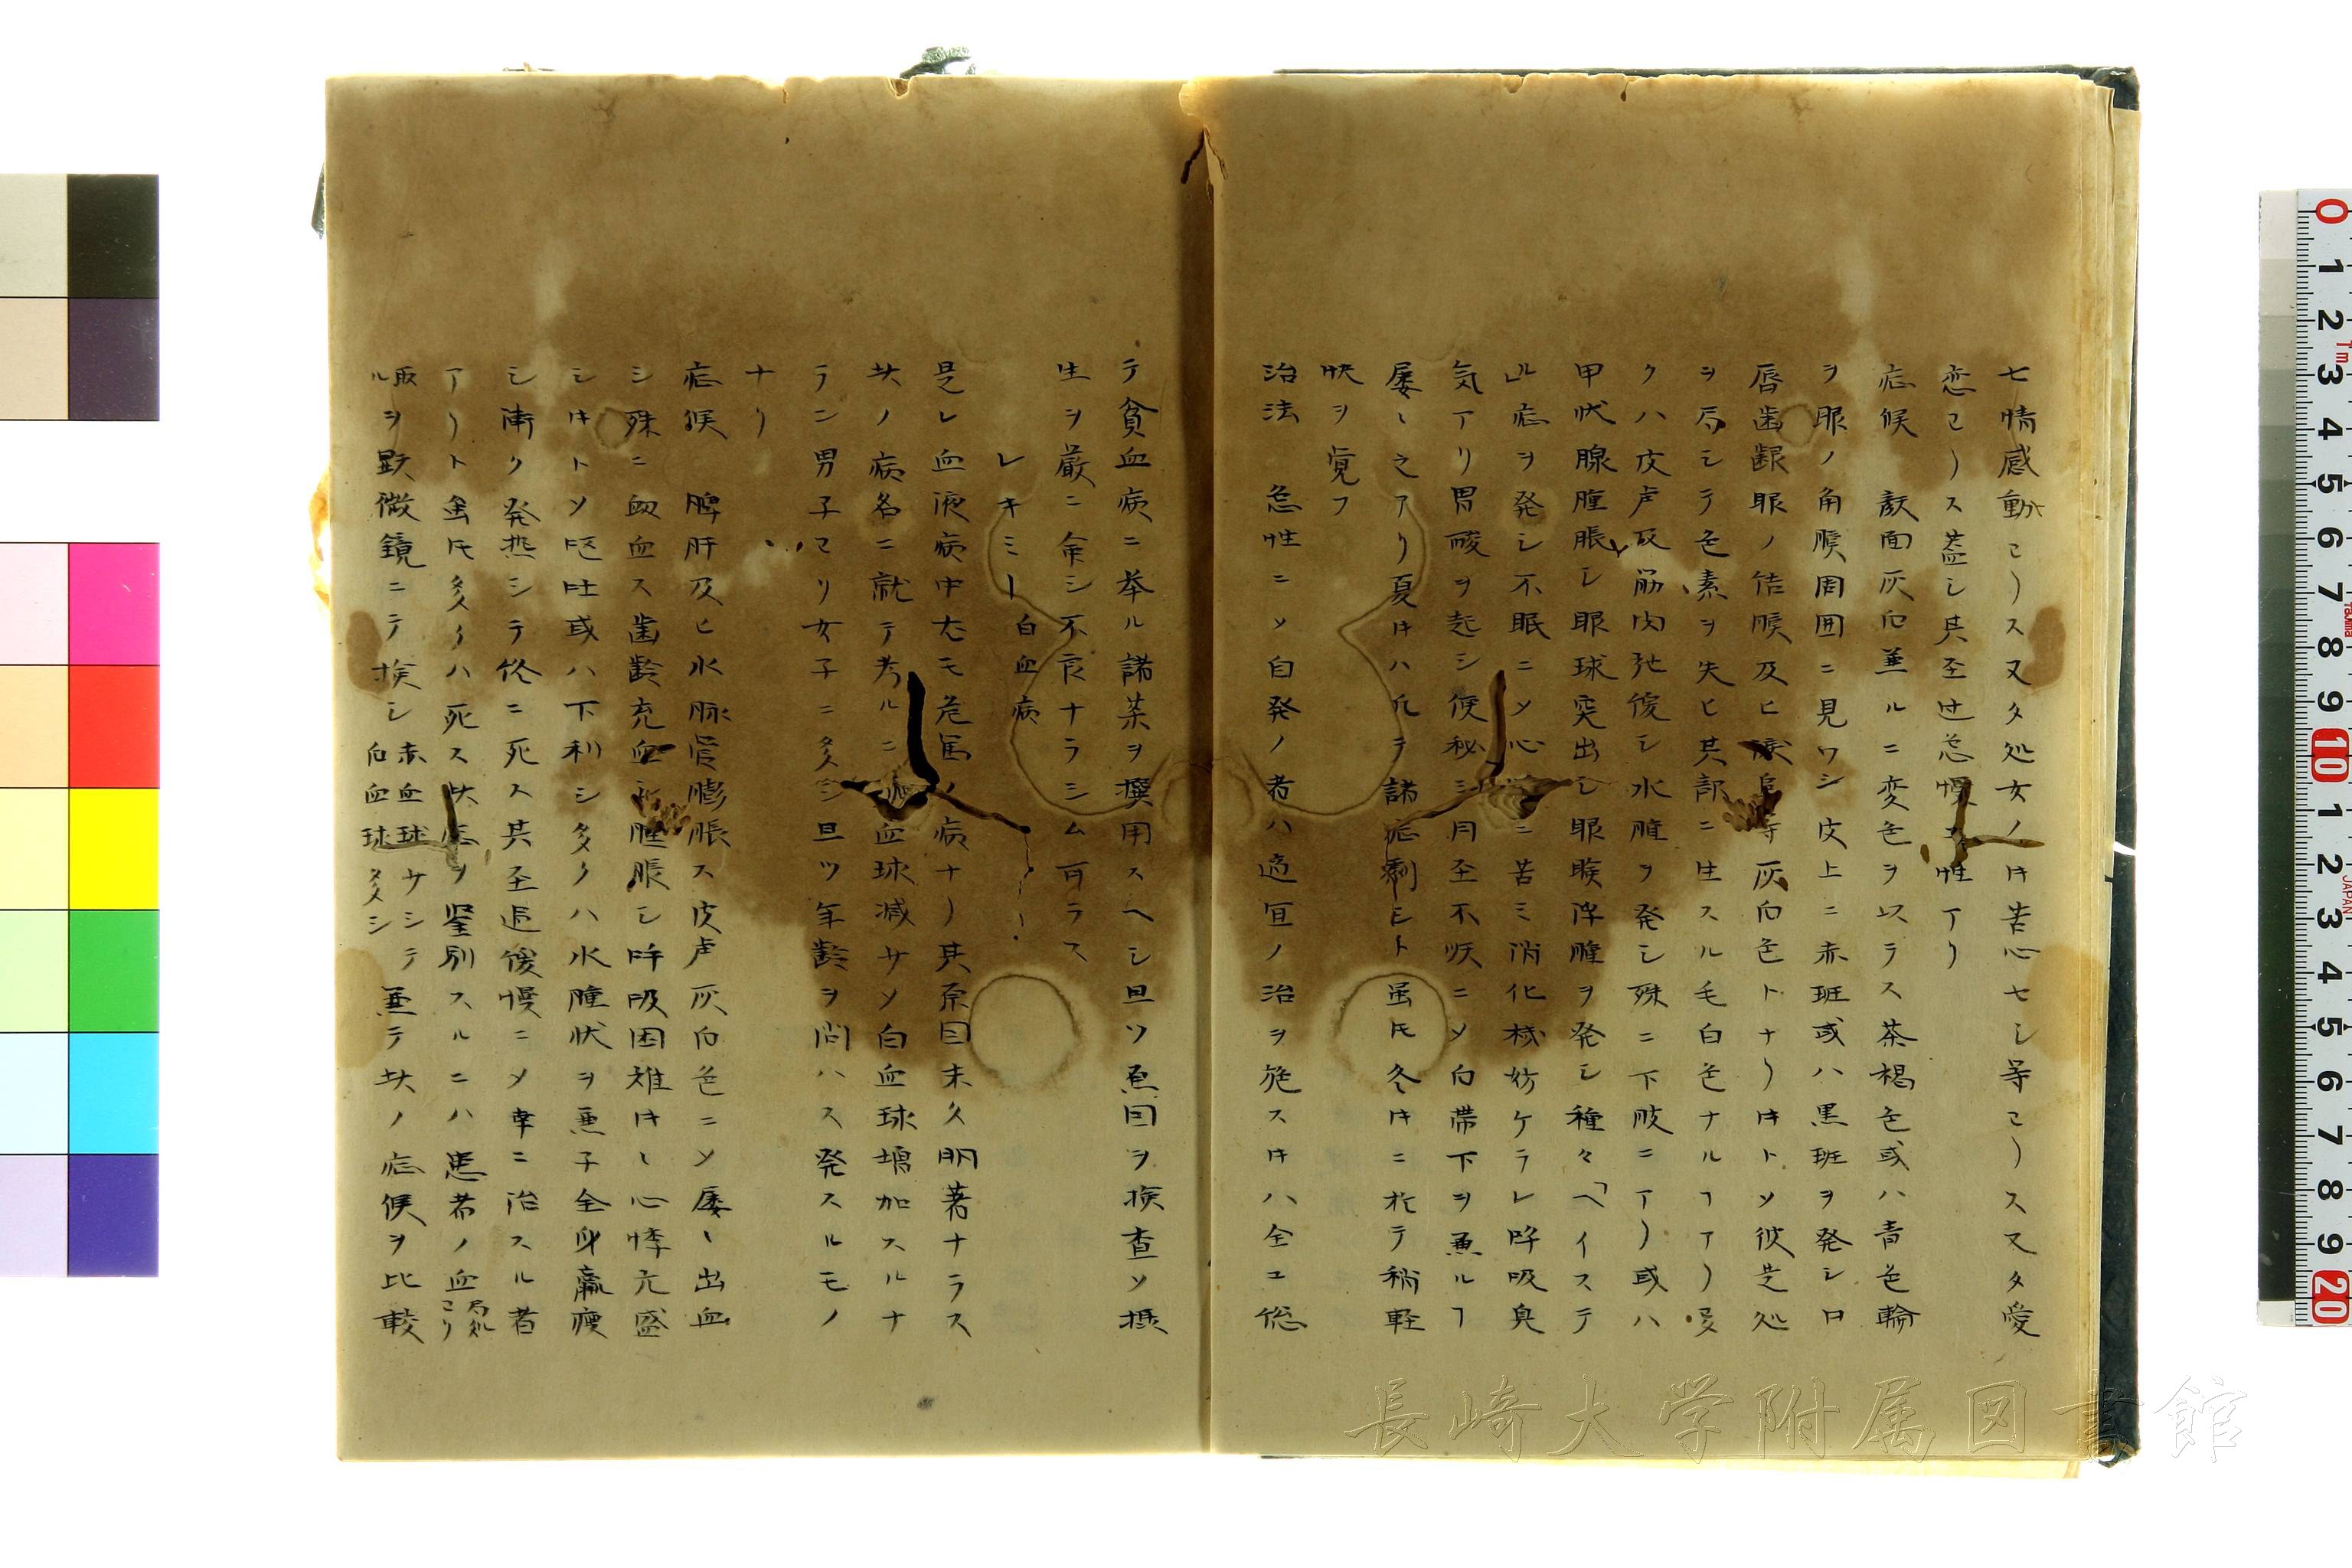 七情感動ヿ)ス又タ処女ノ𪜈苦心セシ等ヿ)ス又タ愛
恋ヿ)ス蓋シ其至性アリ
症候 顔面灰白兼ルニ変色ヲ以ラス茶褐色或ハ青色輪
ヲ眼ノ角膜周囲ニ見ワシ皮上ニ赤斑或ハ黒斑ヲ発シ口
唇歯齦眼ノ結膜及ヒ等灰白色トナリ𪜈トソ彼是処
ヲ局シテ色素ヲ失ヒ其部ニ生スル毛白色ナルヿアリ
クハ皮膚及筋肉弛緩シ水腫ヲ発シ殊ニ下肢ニアリ或ハ
甲状腺腫脹シ眼球突出シ眼瞼浮腫ヲ発シ種々「ヘイステ
ル」症ヲ発シ不眠ニソ心ニ苦ミ消化機妨ケラレ呼吸臭
気アリ胃酸ヲ起シ便秘シ月至不順ニソ白帯下ヲ兼ルヿ
屡々之アリ夏𪜈ハ凡テ諸症劇シト虽𪜈冬𪜈ニ於テ稍軽
快ヲ覚フ
治法 急性ニソ自発ノ者ハ適宜ノ治ヲ施ス𪜈ハ全ヱ総
テ貧血病ニ挙ル諸薬ヲ撰用スヘシ且ツ原因ヲ検査ソ摂
生ヲ厳ニ命シ不良ナラシム可ラス
レキミー白血病
是レ血液病中尤モ危篤ノ病ナリ其原因未タ明著ナラス
其ノ病名ニ就テ考ルニ血球減少ソ白血球増加スルナ
ラン男子ヿリ女子ニ多シ且ツ年齢ヲ問ハス発スルモノ
ナリ
症候 脾肝及ヒ水脈管膨脹ス皮膚灰白色ニソ屡々出血
シ殊ニ衂血ス歯齦充血シ腫脹シ呼吸困難𪜈々心悸亢盛
シ𪜈トソ嘔吐或ハ下利シ多クハ水腫状ヲ兼子全身羸痩
シ漸ク発熱シテ終ニ死ス其至過緩慢ニソ幸ニ治スル者
アリト虽𪜈多クハ死ス此症ヲ鑒別スルニハ患者ノ血局処ヿリ
取ルヲ顕微鏡ニテ検シ赤血球少シテ白血球多シ兼テ其ノ症候ヲ比較
長崎大学附属図書館